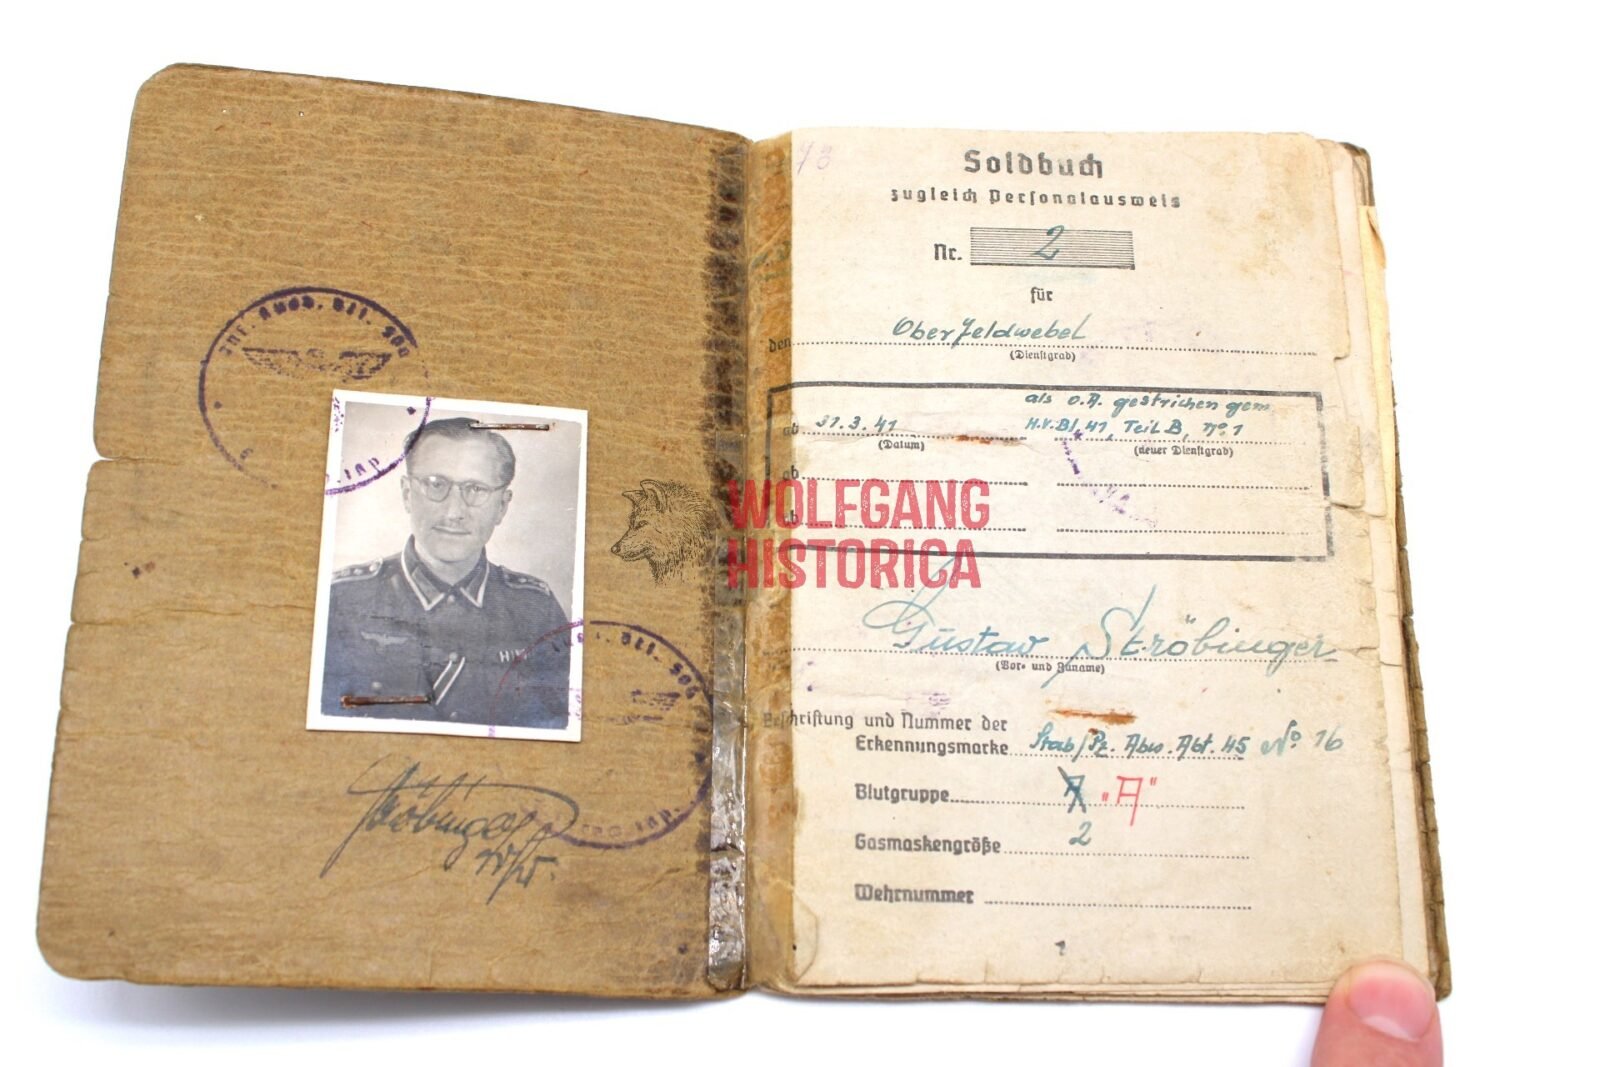 Inf. Ausb. Btl. 500
73
Soldbuch
zugleich Personalausweis
Nr. 2
für
den Oberfeldwebel
(Dienstgrad)
als O.A. gestrichen gem.
ab 31.3.41 H.V.Bl. 41, Teil B, No 1
(Datum) (neuer Dienstgrad)
ab
ab
WOLFGANG
HISTORICA
Gustav Ströbinger
(Vor- und Zuname)
Beschriftung und Nummer der
Erkennungsmarke Stab/Pz. Abw. Abt. 45 No 16
Blutgruppe A "A"
Gasmaskengröße 2
Wehrnummer
1
Ströbinger